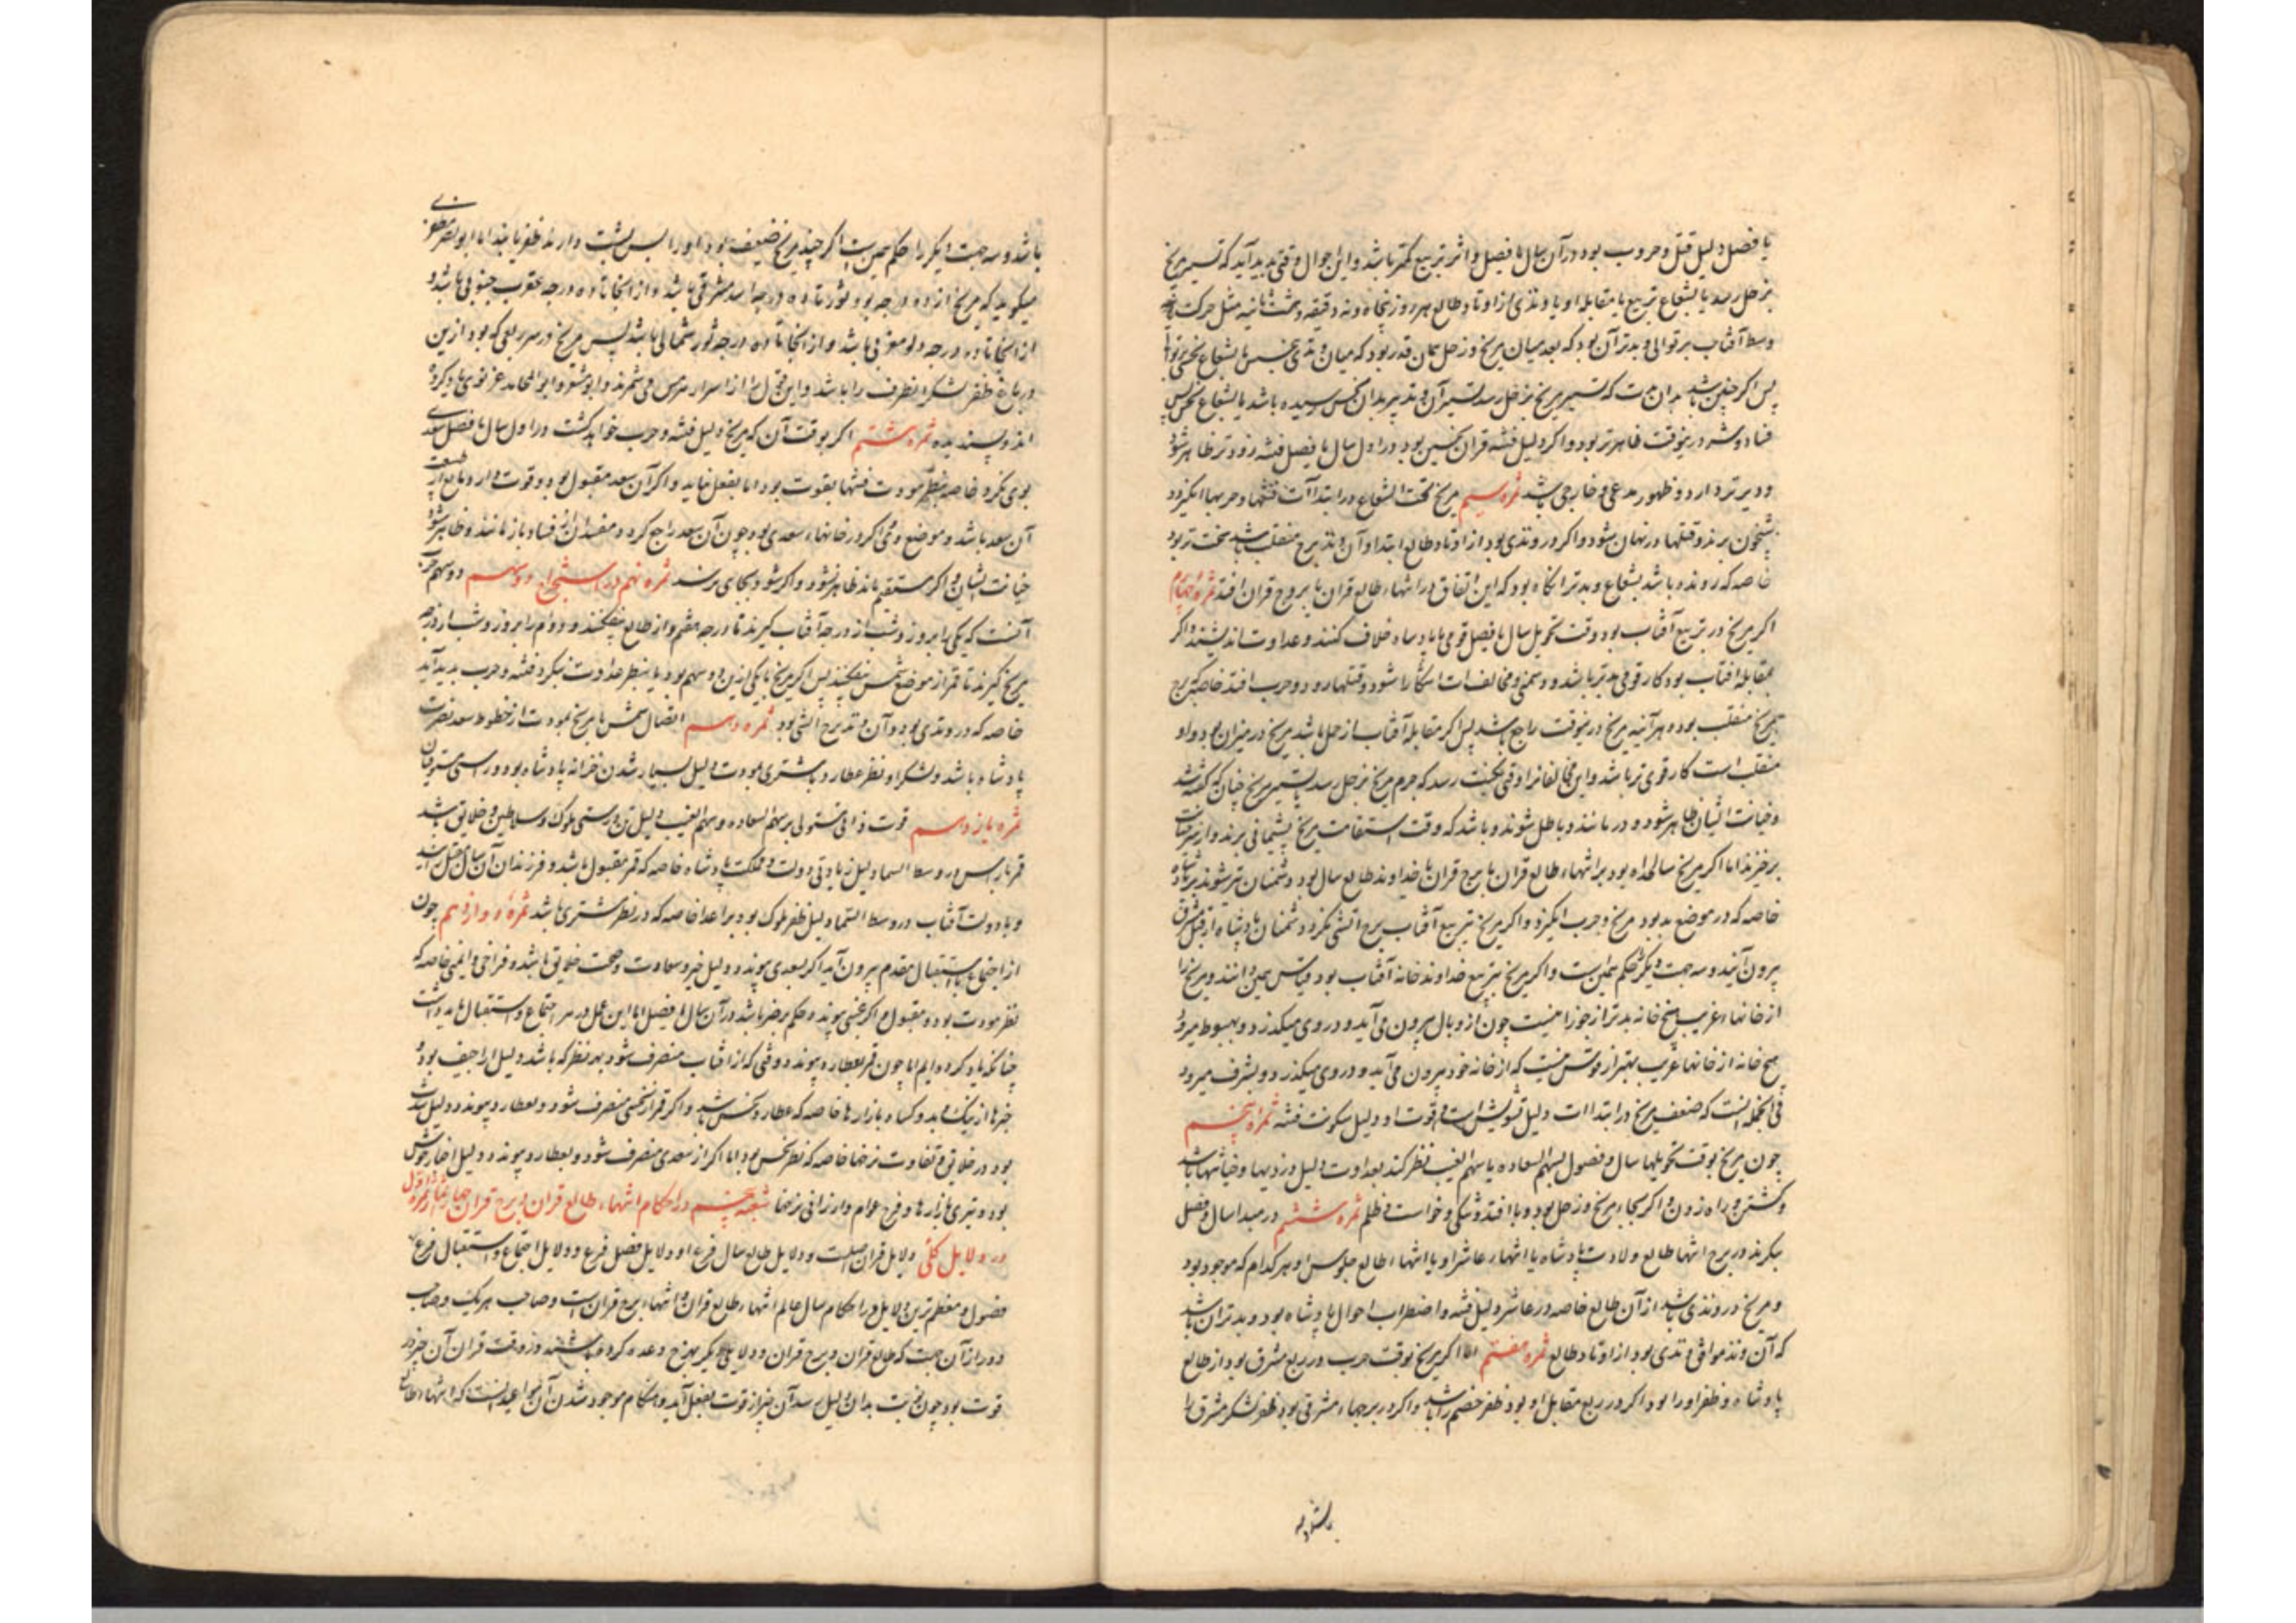 یا فصل دلیل قتل و حروب بود در آن سال یا فصل و اثر تربیع کمتر باشد و این احوال وقتی پدید آید که تسییر مریخ
بزحل رسد یا بشعاع تربیع یا مقابله او یا وتدی از اوتاد طالع هر روز پنجاه و نه دقیقه و هشت ثانیه مثل حرکت
وسط آفتاب بر توالی و بدتر آن بود که بعد میان مریخ و زحل همان قدر بود که میان وتدی
پس اگر چنین باشد بدان وقت که تسییر مریخ بزحل رسد تسییر آن وتد نیز بدان نحس رسیده باشد یا بشعاع نحس پس
فساد و شر درینوقت ظاهرتر بود و اگر دلیل فتنه قران نحسین بود در اول سال یا فصل فتنه زودتر ظاهر شود
و دیرتر دارد و ظهور مدعی و خارجی باشد ثمره سیم مریخ تحت الشعاع در ابتداآت فتنها و حربها انگیزد
شبخون برند و قتلها در نهان شود و اگر در وتدی بود از اوتاد طالع ابتدا و آن وتد برج منقلب باشد سخت تر بود
خاصه که رونده باشد بشعاع و بدتر آنگاه بود که این اتفاق در انتهاء طالع قران یا برج قران افتد ثمره چهارم
اگر مریخ در تربیع آفتاب بود وقت تحویل سال یا فصل قومی با پادشاه خلاف کنند و عداوت اندیشند و اگر
بمقابله افتاب بود کار قوی تر باشد و دشمنی و مخالفت آشکارا شود و قتلها رود و حرب افتد خاصه که برج
مریخ منقلب بود و هر آینه مریخ درینوقت راجع باشد پس اگر مقابله آفتاب از حمل باشد مریخ در میزان بود و او
منقلب است کار قوی تر باشد و این مخالفانرا وقتی نکبت رسد که جرم مریخ بزحل رسد یا تسییر مریخ چنان که گفته شد
و خیانت ایشان ظاهر شود و درمانند و باطل شوند و باشد که وقت استقامت مریخ پشیمانی برند و از سر خیانت
برخیزند اما اگر مریخ سالخداه بود بر انتهاء طالع قران یا برج قران یا خداوند طالع سال بود دشمنان
خاصه که در موضع بد بود مریخ و حرب انگیزد و اگر مریخ بتربیع آفتاب ببرج آتشی نگرد دشمنان پادشاه از قبل مشرق
بیرون آیند و سه جهت دیگر حکم همین است و اگر مریخ بتربیع خداوند خانه آفتاب بود قیاس همین دانند و مریخ را
از خانهاء غریب هیچ خانه بدتر از جوزا نیست چون از وبال بیرون می آید و در وی میگذرد و بهبوط میرود
هیچ خانه از خانهاء غریب بهتر از قوس نیست که از خانه خود بیرون می آید و در وی میگذرد و بشرف میرود
فی الجمله آنست که ضعف مریخ در ابتداآت دلیل تشویش است و قوت او دلیل سکونت فتنه ثمره پنجم
چون مریخ بوقت تحویلها سال و فصول بسهم السعاده یا سهم الغیب نظر کند بعداوت دلیل دزدیها و خیانتها باشد
و کشتن و راه زدن و اگر بجاء مریخ زحل بود وبا افتد و تنگی و خواست و ظلم ثمره ششم در مبدا سال و فصل
بنگرند در برج انتها طالع ولادت پادشاه یا انتهاء عاشر او یا انتهاء طالع جلوس او هر کدام که موجود بود
و مریخ در وتدی باشد از آن طالع خاصه در عاشر دلیل فتنه و اضطراب احوال پادشاه بود و بدتر آن باشد
که آن وتد موافق وتدی بود از اوتاد طالع ثمره هفتم اما اگر مریخ بوقت حرب در ربع مشرق بود از طالع
پادشاه و ظفر او را بود اگر در ربع مقابل او بود ظفر خصم را باشد و اگر در برجهاء مشرقی بود ظفر لشکر مشرق را
باشد و سه جهت دیگر را حکم همین است اگر چند مریخ ضعیف بود او را پس پشت دارند ظفر یابند اما ابو نصر
میگوید که مریخ از ده درجه ثور تا ده درجه اسد مشرقی باشد و از آنجا تا ده درجه عقرب جنوبی باشد و
از آنجا تا ده درجه دلو مغربی باشد و از آنجا تا ده درجه ثور شمالی باشد پس مریخ در هر ربعی که بود ازین
ارباع ظفر لشکر آنطرف را باشد و این قول را از اسرار هرمس می شمرند و ابومعشر و ابوالمحامد غزنوی یاد کرده
اند و پسندیده ثمره هشتم اگر بوقت آن که مریخ دلیل فتنه و حرب خواهد گشت در اول سال یا فصل سعدی
بوی نگرد خاصه بنظر مودت فتنها بقوت بود اما بفعل نیاید و اگر آن سعد مقبول بود و قوت دارد
آن سعد باشد و موضع وی اگر در خانهاء سعدی بود چون آن سعد راجع گردد مفسدان از فساد باز مانند و ظاهر شود
خیانت ایشان و اگر مستقیم باشد ظاهر نشود و اگر شود بجای نرسد ثمره نهم در استخراج دو سهم دو سهم حرب
آنست که یکی را بروز و شب از درجه آفتاب گیرند تا درجه قمر و از طالع بیفکنند و دوم را بروز و شب از درجه
مریخ گیرند تا قمر از موضع شمس بیفکنند پس اگر مریخ با یکی ازین دو سهم بود یا بنظر عداوت نگرد فتنه و حرب پدید آید
خاصه که در وتدی بود و آن وتد برج آتشی بود ثمره دهم اتصال شمس با مریخ بمودت از خطوط سعد نصرت
پادشاه باشد و لشکر او نظر عطارد با مشتری بمودت دلیل بسیار شدن خزانه پادشاه بود و راستی مستوفیان
ثمره یازدهم قوت ذاتی مستولی بر سهم السعاده و سهم الغیب دلیل تن درستی ملوک و سلاطین و خلایق باشد
قمر با راس در وسط السما دلیل زیادتی دولت و مملکت پادشاه خاصه که قمر مقبول باشد و فرزندان
و با دولت آفتاب در وسط السماء دلیل ظفر ملوک بود بر اعدا خاصه که در نظر مشتری باشد ثمره دوازدهم چون
از اجتماع یا استقبال مقدم بیرون آید اگر بسعدی پیوندد دلیل خیر و سعادت و صحت خلایق باشد و فراخی و ایمنی خاصه که
نظر مودت بود و مقبول و اگر بنحس پیوندد حکم بر ضد باشد در آن سال یا فصل اما این عمل در هر اجتماع و استقبال باید داشت
چنانکه یاد کرده ایم اما چون قمر بعطارد پیوندد وقتی که از آفتاب منصرف شود بهر نظر که باشد دلیل اراجیف بود و
خبرها از نیک و بد و کساد بازارها خاصه که عطارد نحس باشد و اگر قمر از نحسی منصرف شود و بعطارد پیوندد دلیل
بود در خلایق و تفاوت نرخها خاصه که نظر نحس بود اما اگر از سعدی منصرف شود و بعطارد پیوندد دلیل اخبار خوش
بود و تیزی بازارها و فرح عوام و ارزانی نرخها شعبه پنجم در احکام انتهاء طالع قران و برج قران ثمره اول
در دلایل کلی دلایل قران اصلست و دلایل طالع سال فرع او و دلایل فصل فرع و دلایل اجتماع و استقبال فرع
فصول و معظم ترین دلایل در احکام سال عالم انتهاء طالع قران و انتهاء برج قران است و صاحب هر یک و صاحب
دور از آن جهت که طالع قران و برج قران و دلایل دیگر بهر چ وعده کرده باشند در وقت قران آن چیز در
قوت بود چون نوبت بدان دلیل رسد آن چیز از قوت بفعل آید و هنگام موجود شدن آن مواعید آنست که انتهاء طالع